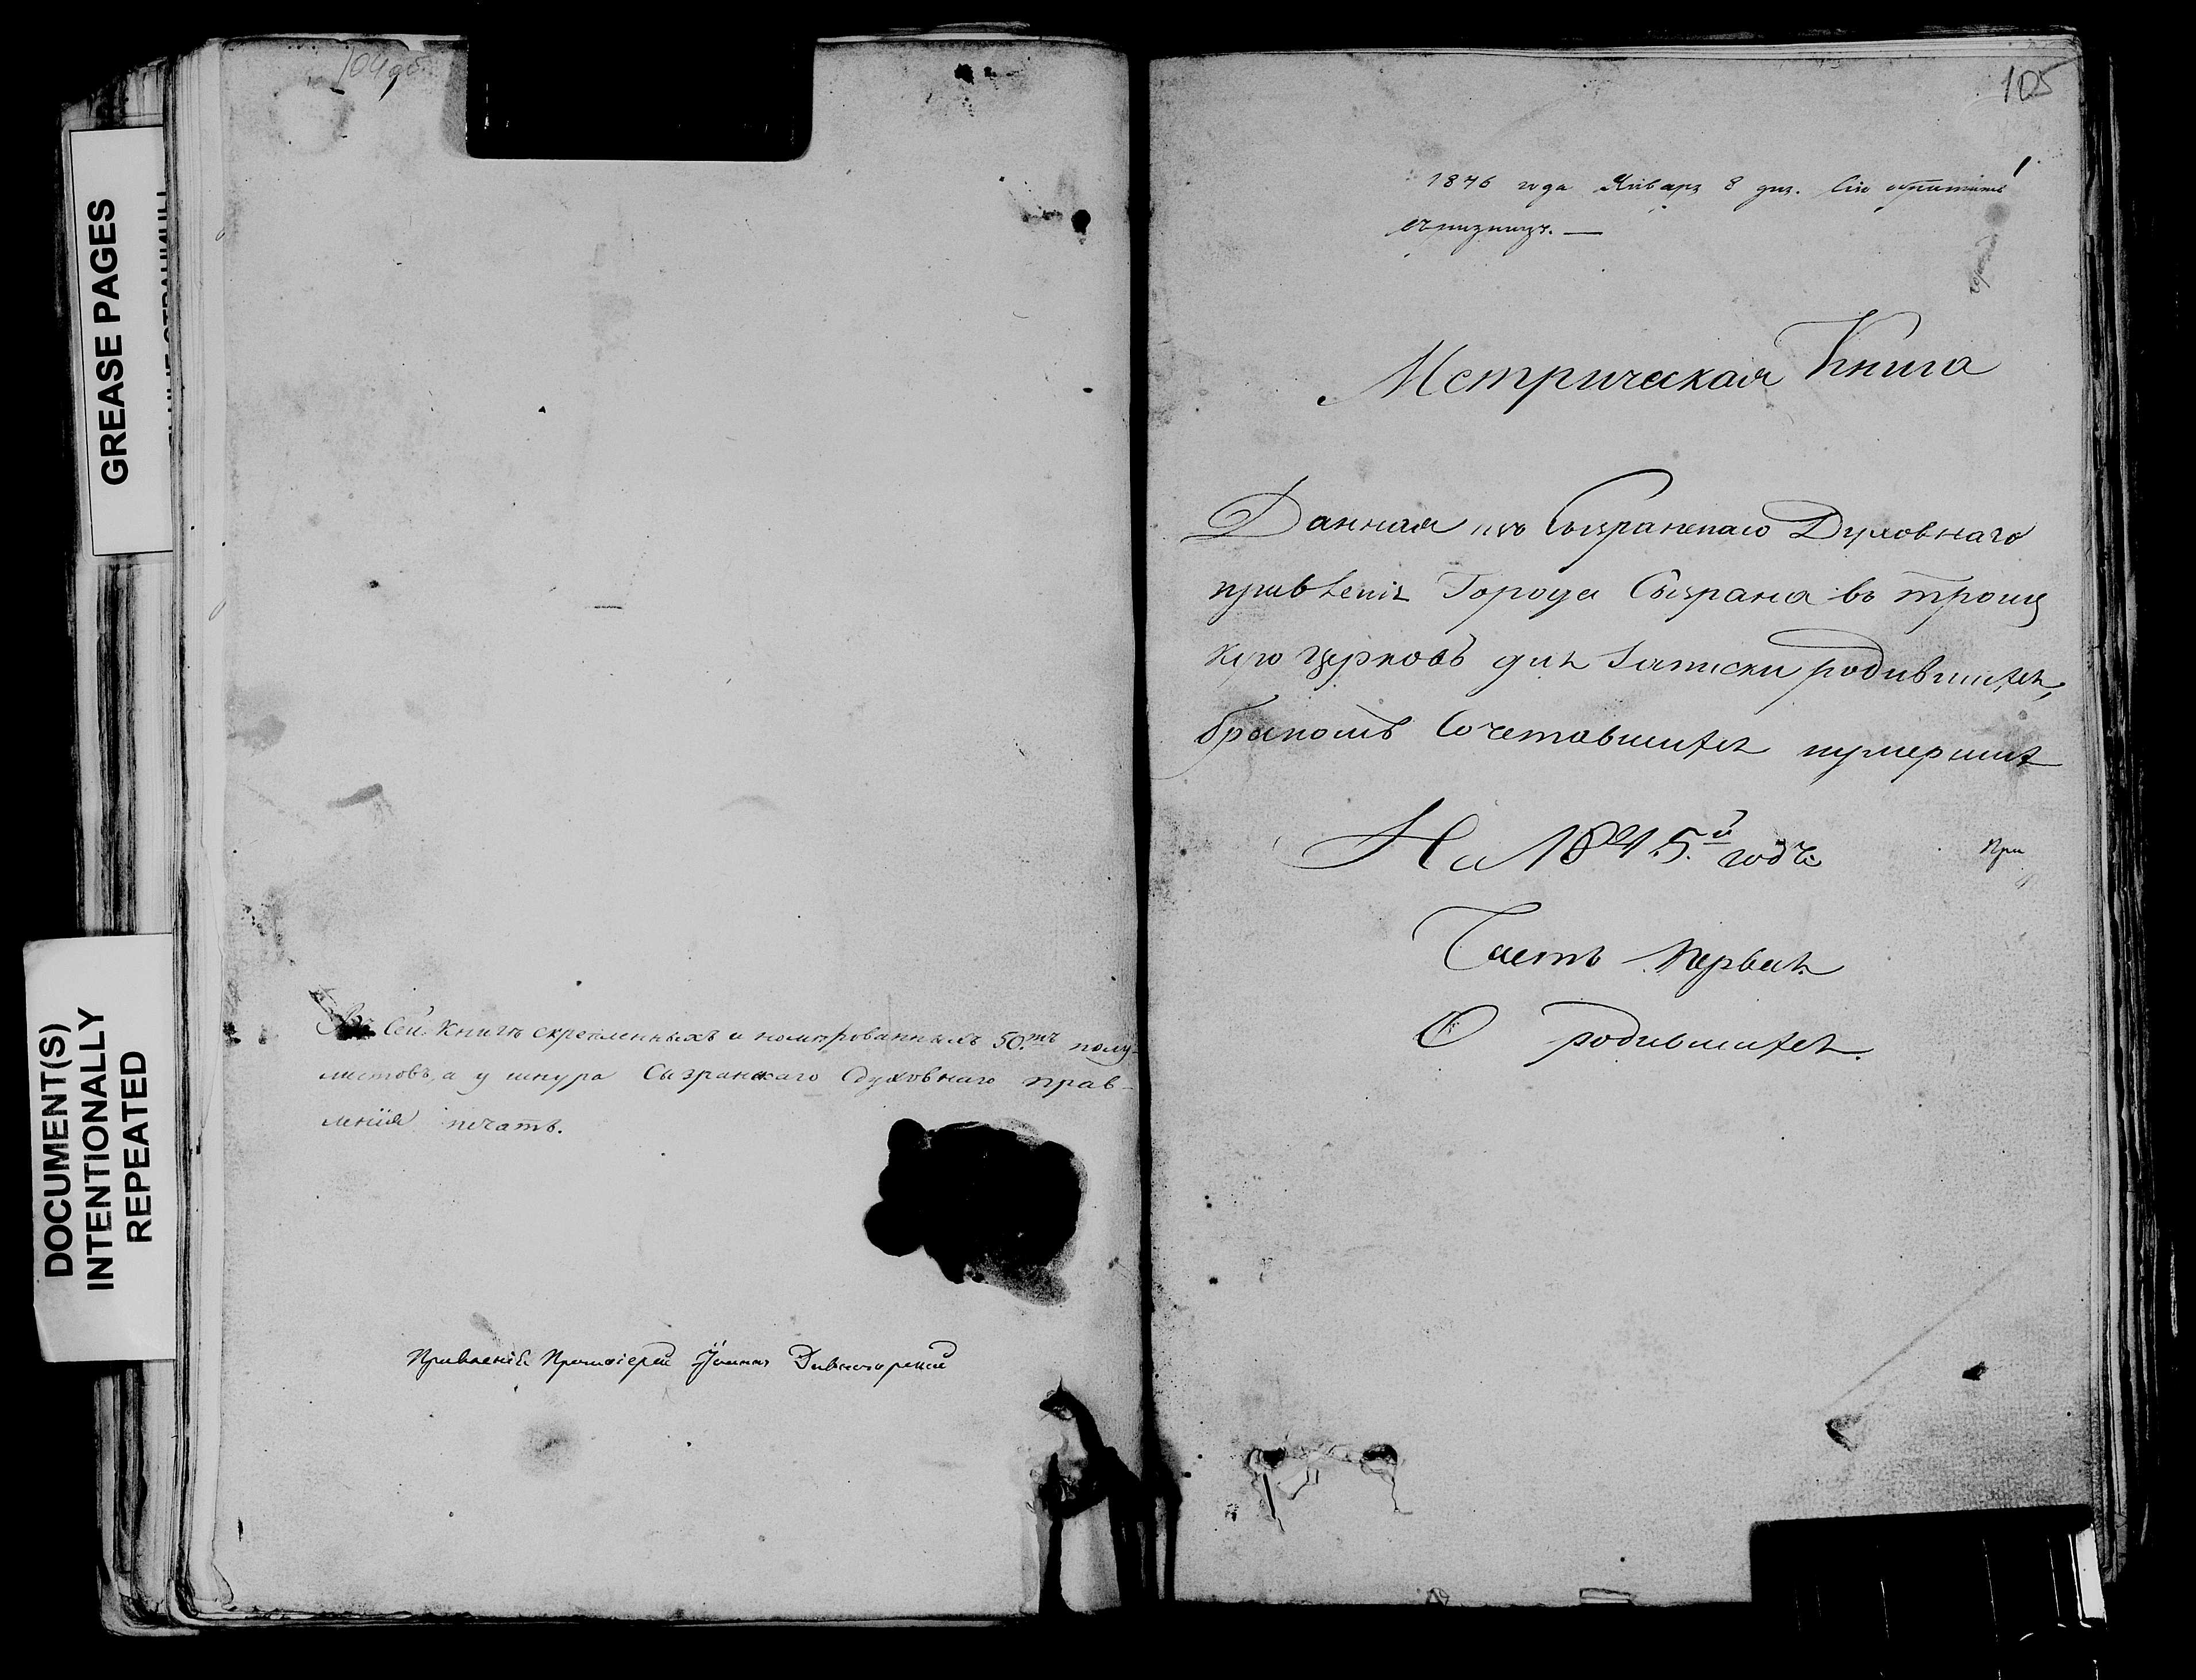 104 об.
GREASE PAGES
DOCUMENT(S)
INTENTIONALLY
REPEATED
Въ сей книгѣ скрепленныхъ и номерованныхъ 50.тъ полу-
листовъ, а у шнура Сызранскаго Духовнаго прав-
ленія печать.
Правленія Протоіерей Іоаннъ Дивногорскій
105
1
1846 года Января 8 дня. Сію
Метрическая Книга
Данная изъ Сызранскаго Духовнаго
правленія Города Сызрана въ троиц
кую церковь для записки родившихся,
бракомъ Сочетавшихся и умершихъ
На 1845.й годъ.
При
Часть первая
О родившихся.